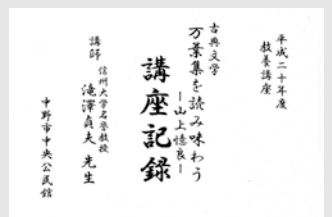 平成二十年度
教養講座
古典文学
万葉集を読み味わう
―山上憶良―
講座記録
講師
信州大学名誉教授
滝澤貞夫 先生
中野市中央公民館